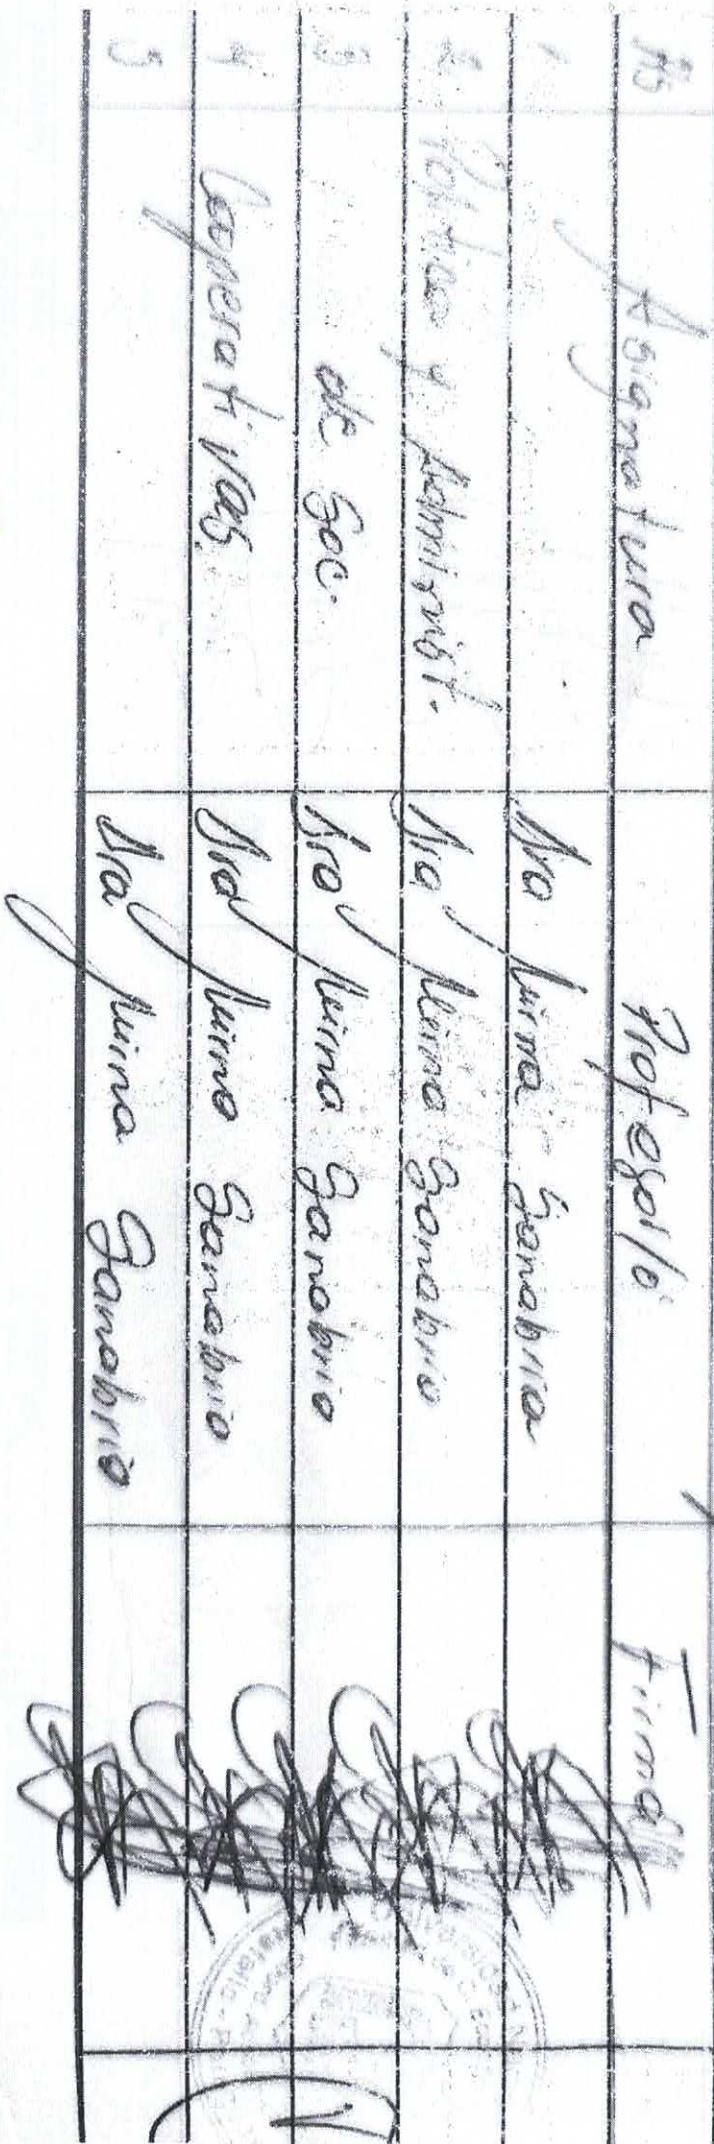 Asignatura Profesor/a Firma
1 Dra Mirna Sanabria
2 Práctica y Administ. Dra Mirna Sanabria
3 de Soc. Dra Mirna Sanabria
4 Cooperativas Dra Mirna Sanabria
5 Dra Mirna Sanabria